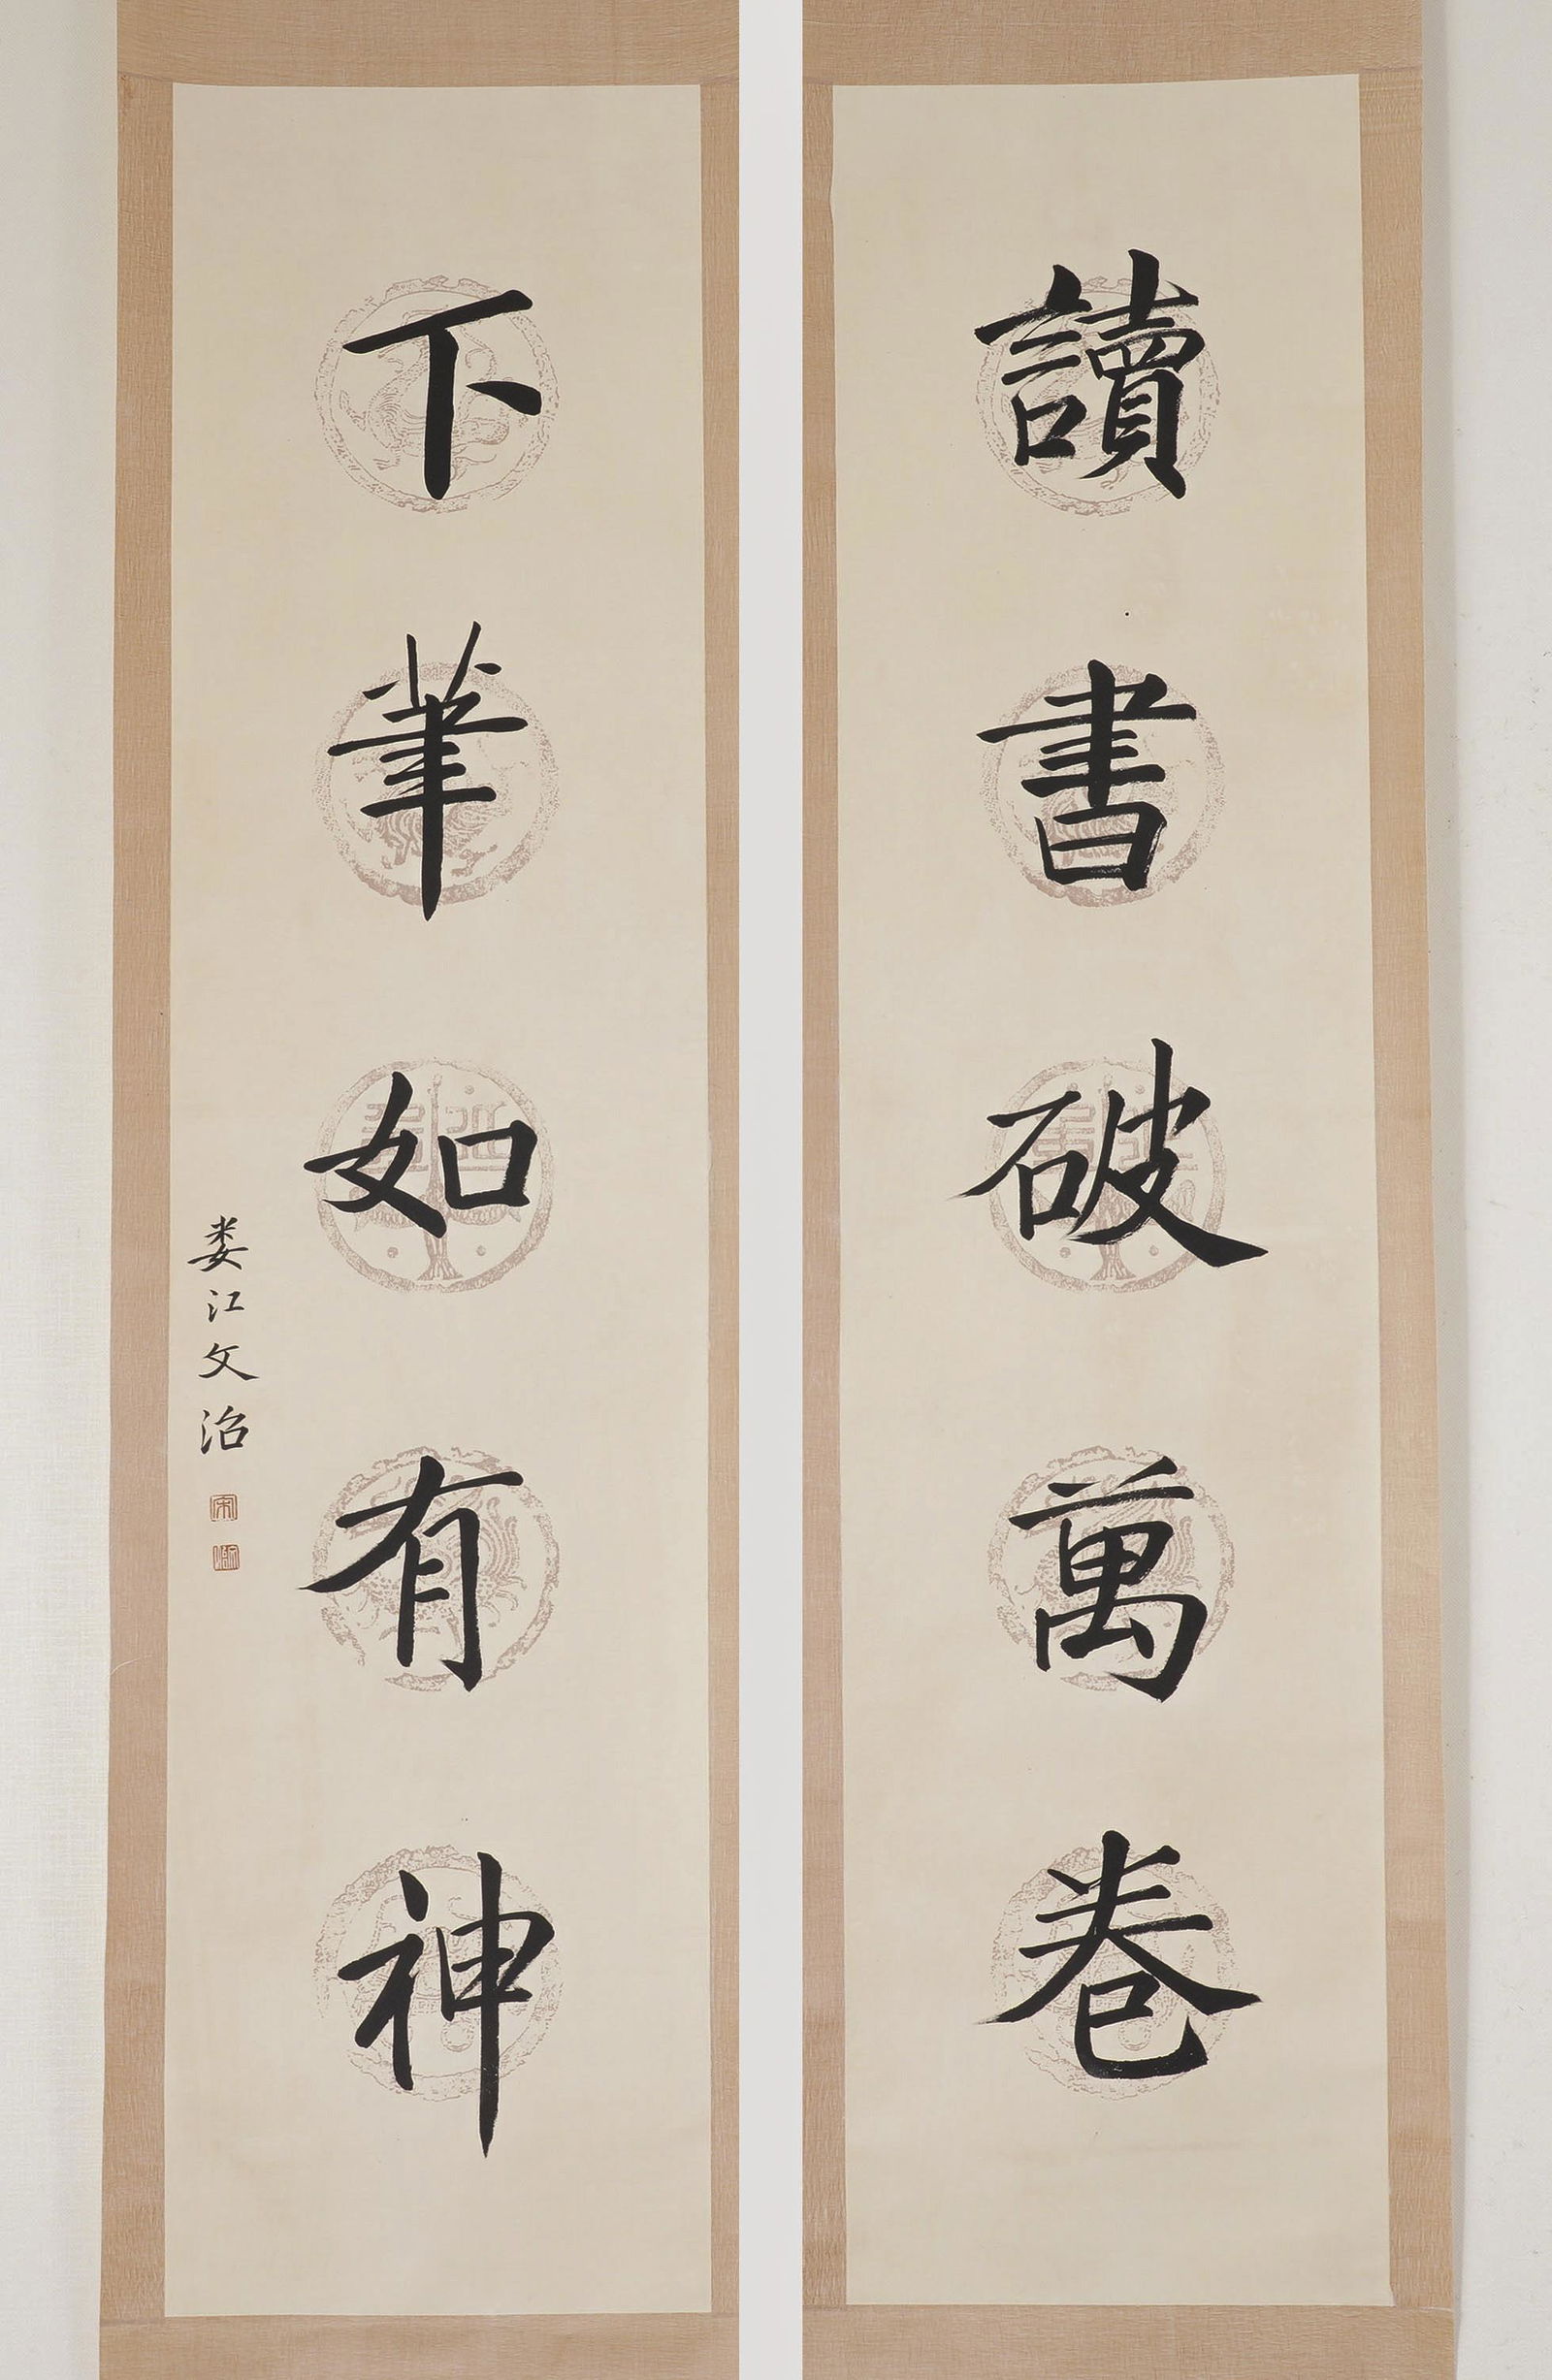 讀書破萬卷
下筆如有神
娄江文治
宋